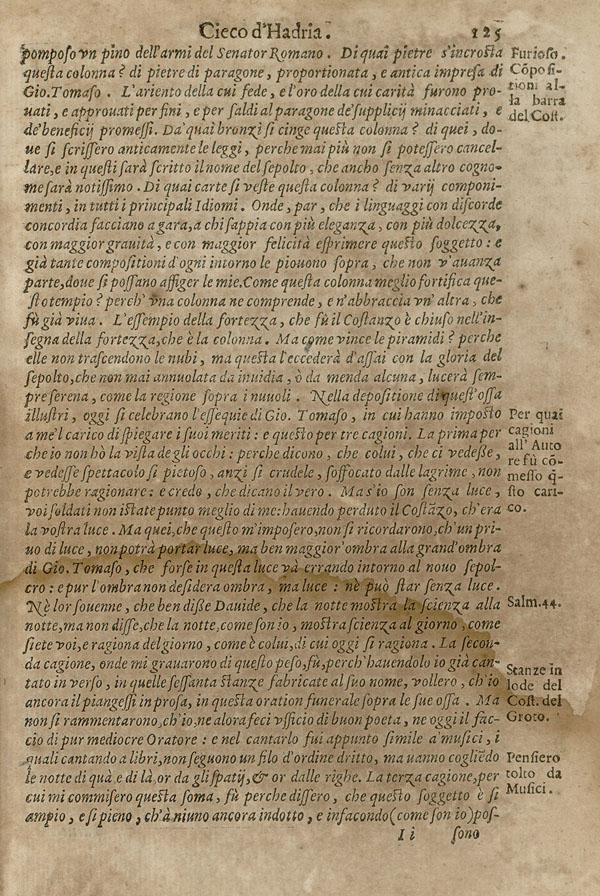 Cieco d'Hadria. 125
pomposo vn pino dell'armi del Senator Romano. Di quai pietre s'incrosta
questa colonna? di pietre di paragone, proportionata, e antica impresa di
Gio. Tomaso. L'ariento della cui fede, e l'oro della cui carità furono pro-
uati, e approuati per fini, e per saldi al paragone de' supplicij minacciati, e
de' beneficij promessi. Da' quai bronzi si cinge questa colonna? di quei, do-
ue si scrissero anticamente le leggi, perche mai più non si potessero cancel-
lare, e in questi sarà scritto il nome del sepolto, che ancho senza altro cogno-
me sarà notissimo. Di quai carte si veste questa colonna? di varij componi-
menti, in tutti i principali Idiomi. Onde, par, che i linguaggi con discorde
concordia facciano a gara, a chi sappia con più eleganza, con più dolcezza,
con maggior grauità, e con maggior felicità esprimere questo soggetto: e
già tante compositioni d'ogni intorno le piouono sopra, che non v'auanza
parte, doue si possano affiger le mie. Come questa colonna meglio fortifica que-
sto tempio? perch' vna colonna ne comprende, e n'abbraccia vn' altra, che
fù già viua. L'essempio della fortezza, che fù il Costanzo è chiuso nell'in-
segna della fortezza, che è la colonna. Ma come vince le piramidi? perche
elle non trascendono le nubi, ma questa l'eccederà d'assai con la gloria del
sepolto, che non mai annuolata da inuidia, ò da menda alcuna, lucerà sem-
pre serena, come la regione sopra i nuuoli. Nella depositione di quest'ossa
illustri, oggi si celebrano l'essequie di Gio. Tomaso, in cui hanno imposto
a me'l carico di spiegare i suoi meriti: e questo per tre cagioni. La prima per
che io non hò la vista de gli occhi: perche dicono, che colui, che ci vedesse,
e vedesse spettacolo sì pietoso, anzi sì crudele, soffocato dalle lagrime, non
potrebbe ragionare: e credo, che dicano il vero. Ma s'io son senza luce,
voi soldati non istate punto meglio di me: hauendo perduto il Costãzo, ch'era
la vostra luce. Ma quei, che questo m'imposero, non si ricordarono, ch'un pri-
uo di luce, non potrà portar luce, ma ben maggior'ombra alla grand'ombra
di Gio. Tomaso, che forse in questa luce và errando intorno al nouo sepol-
cro: e pur l'ombra non desidera ombra, ma luce: nè può star senza luce.
Nè lor souenne, che ben disse Dauide, che la notte mostra la scienza alla
notte, ma non disse, che la notte, come son io, mostra scienza al giorno, come
siete voi, e ragiona del giorno, come è colui, di cui oggi si ragiona. La secon-
da cagione, onde mi grauarono di questo peso, fù, perch'hauendolo io già can-
tato in verso, in quelle sessanta stanze fabricate al suo nome, vollero, ch'io
ancora il piangessi in prosa, in questa oration funerale sopra le sue ossa. Ma
non si rammentarono, ch'io, ne alora feci vfficio di buon poeta, ne oggi il fac-
cio di pur mediocre Oratore: e nel cantarlo fui appunto simile a' musici, i
quali cantando a libri, non seguono un filo d'ordine dritto, ma uanno cogliẽdo
le notte di quà e di là, or da gli spatij, & or dalle righe. La terza cagione, per
cui mi commisero questa soma, fù perche dissero, che questo soggetto è sì
ampio, e sì pieno, ch'à niuno ancora indotto, e infacondo (come son io) pos-
I i sono
Furioso.
Cõposi-
tioni al-
la barra
del Cost.
Per quai
cagioni
all' Auto
re fù cõ-
messo q̃-
sto cari-
co.
Salm. 44.
Stanze in
lode del
Cost. del
Groto.
Pensiero
tolto da
Musici.